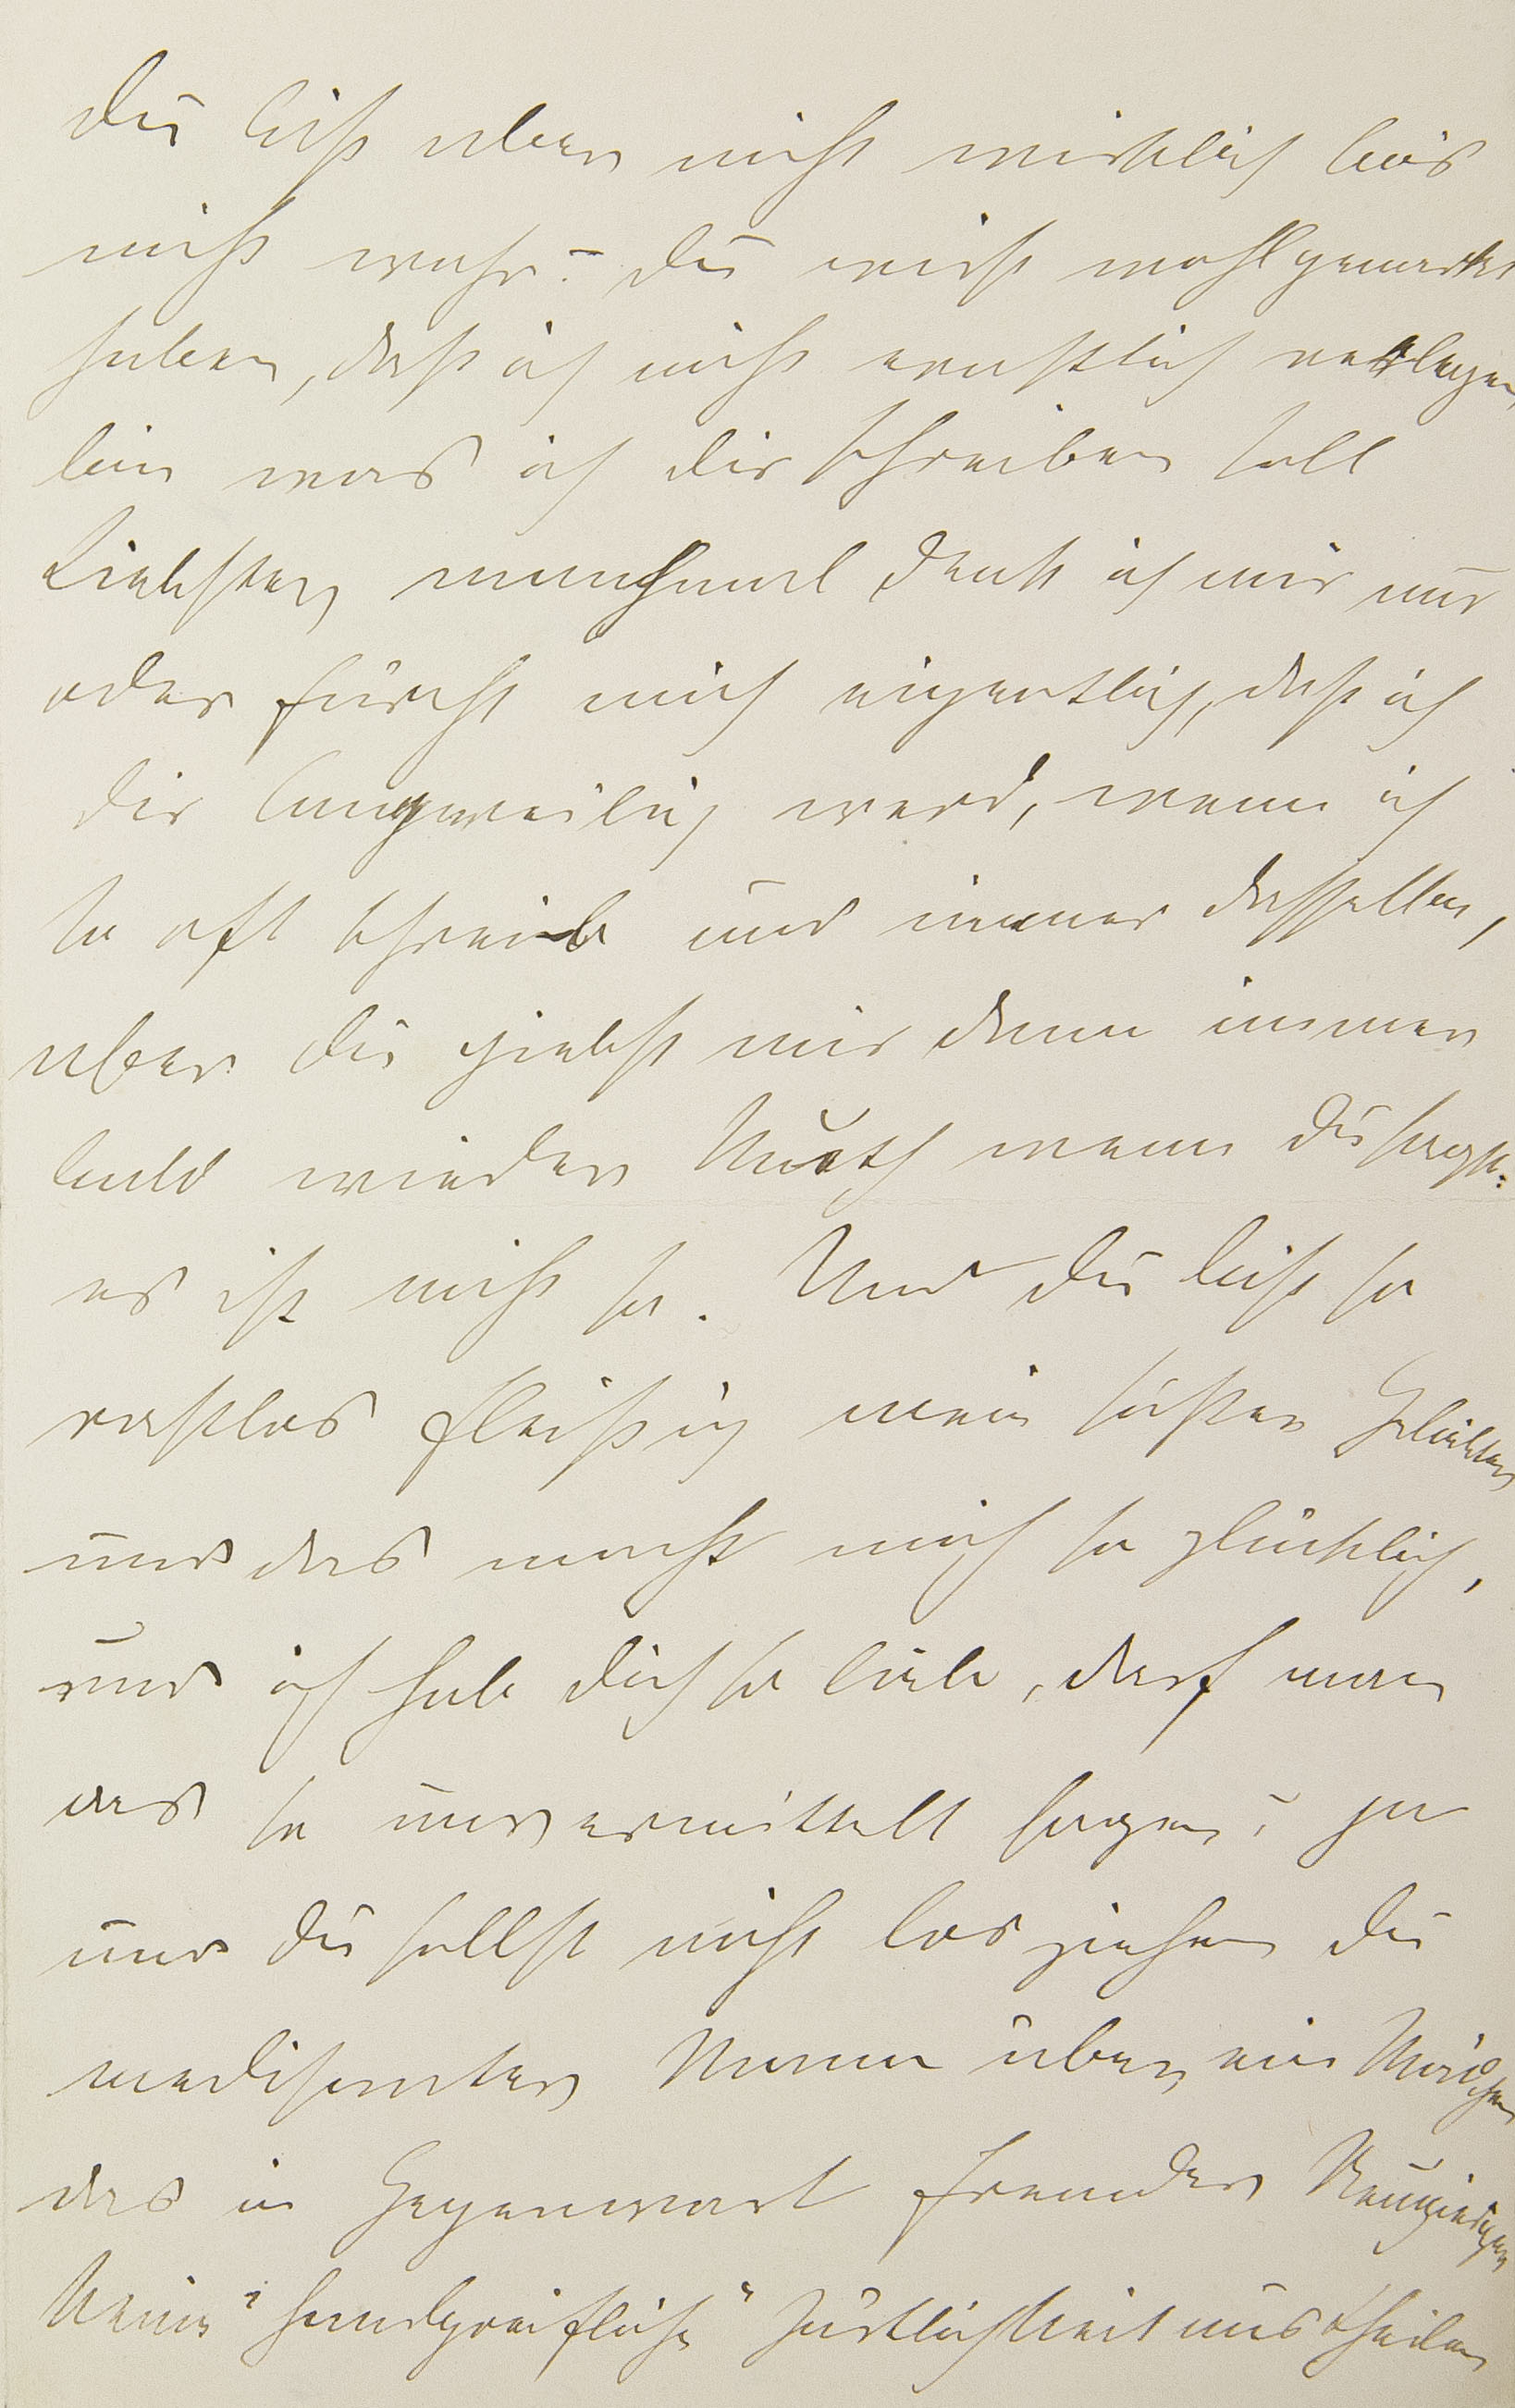 Du bist aber nicht wirklich bös
nicht wahr? Du wirst wohl gemerkt
haben, daß ich nicht ernstlich verlegen
bin was ich Dir schreiben soll
Liebster, manchmal denk ich mir nur
oder fürcht mich eigentlich, daß ich
Dir langweilig werd, wenn ich
so oft schreib und immer dasselbe,
aber Du giebst mir dann immer
bald wieder Muth wenn Du sagst:
es ist nicht so. Und Du bist so
rastlos fleißig mein süßer Geliebter
und das macht mich so glücklich,
und ich hab Dich so lieb, darf man
das so unvermittelt sagen? ja
und Du sollst nicht los ziehen Du
medisanter Mann über ein Mädchen
das in Gegenwart fremder Neugieriger
keine "handgreifliche" Zärtlichkeit austheilen